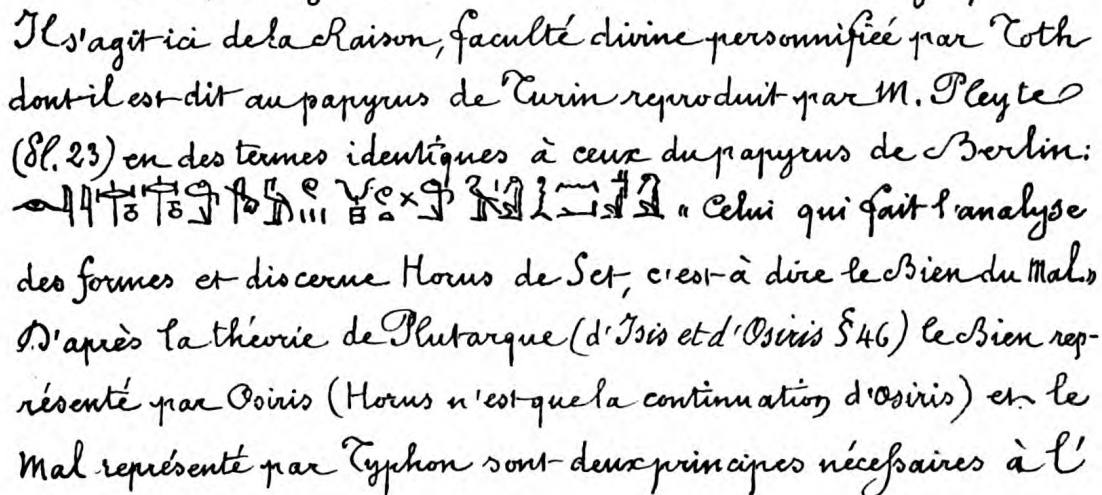 Il s'agit ici de la Raison, faculté divine personnifiée par Toth
dont il est dit au papyrus de Turin reproduit par M. Pleyte
(Pl. 23) en des termes identiques à ceux du papyrus de Berlin:
« Celui qui fait l'analyse
des formes et discerne Horus de Set, c'est à dire le Bien du Mal.»
D'après la théorie de Plutarque (d'Isis et d'Osiris § 46) le Bien rep-
résenté par Osiris (Horus n'est que la continuation d'Osiris) et le
Mal représenté par Typhon sont deux principes nécessaires à l'